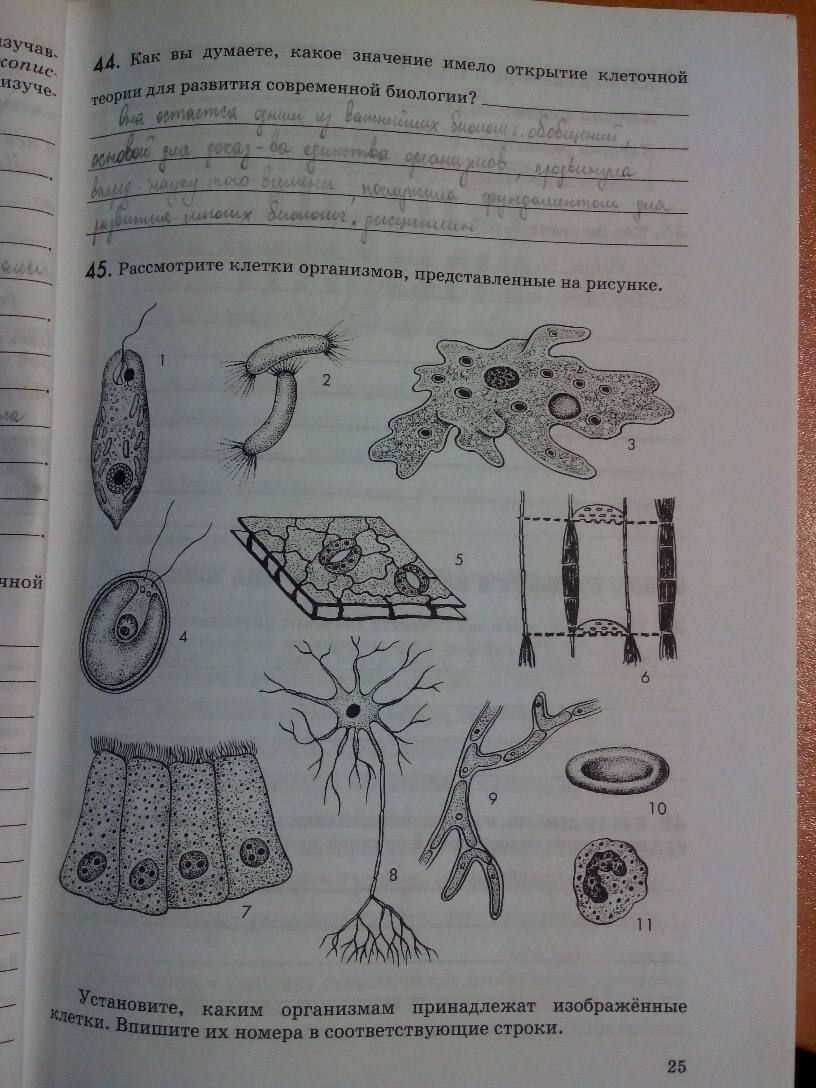 изучав-
копис-
изуче-
44. Как вы думаете, какое значение имело открытие клеточной
теории для развития современной биологии?
Она остается одним из важнейших биологич. обобщений,
основой для доказ-ва единства организмов, продвинула
вперед науку того времени, послужила фундаментом для
развития многих биологич. дисциплин.
45. Рассмотрите клетки организмов, представленные на рисунке.
1
2
3
4
5
6
7
8
9
10
11
чной
Установите, каким организмам принадлежат изображённые
клетки. Впишите их номера в соответствующие строки.
25